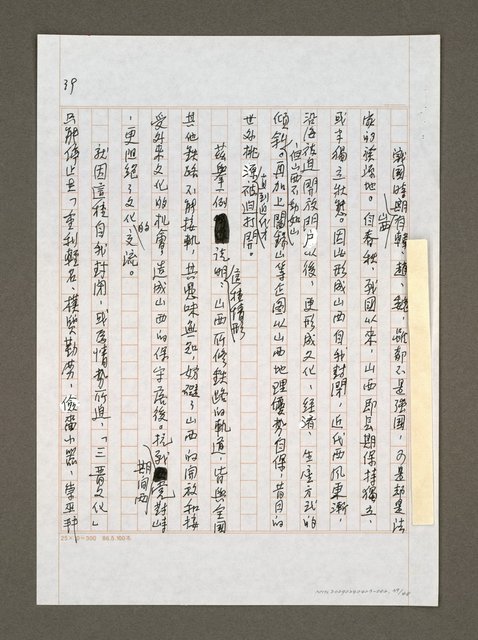 39
戰國時期山西有韓、趙、魏,雖都不是強國,可是却是法
家的發源地。自春秋、戰國以來,山西即長期保持獨立、
或半獨立狀態。因此形成山西自我封閉,近代西風東漸,
沿海被迫開放門戶以後,更形成文化、經濟、生產方式的
傾斜。但山西不動如山,再加上閻錫山等企圖以山西地理優勢自保,昔日的
世外桃源直到近代才被迫打開。
茲舉一例說明:山西所修鐵路的軌道,皆與全國
其他鐵路不能接軌,其意味
這種情形
妨礙了山西的開放和接
受外來文化的機會,造成山西的保守落後。抗戰期間兩黨對峙
,更阻絕了文化的交流。
就因這種自我封閉,或為情勢所迫,「三晉文化」
只能停止在「重利輕名、樸質勤勞、儉嗇小器、
25×12=300 86.5.100本